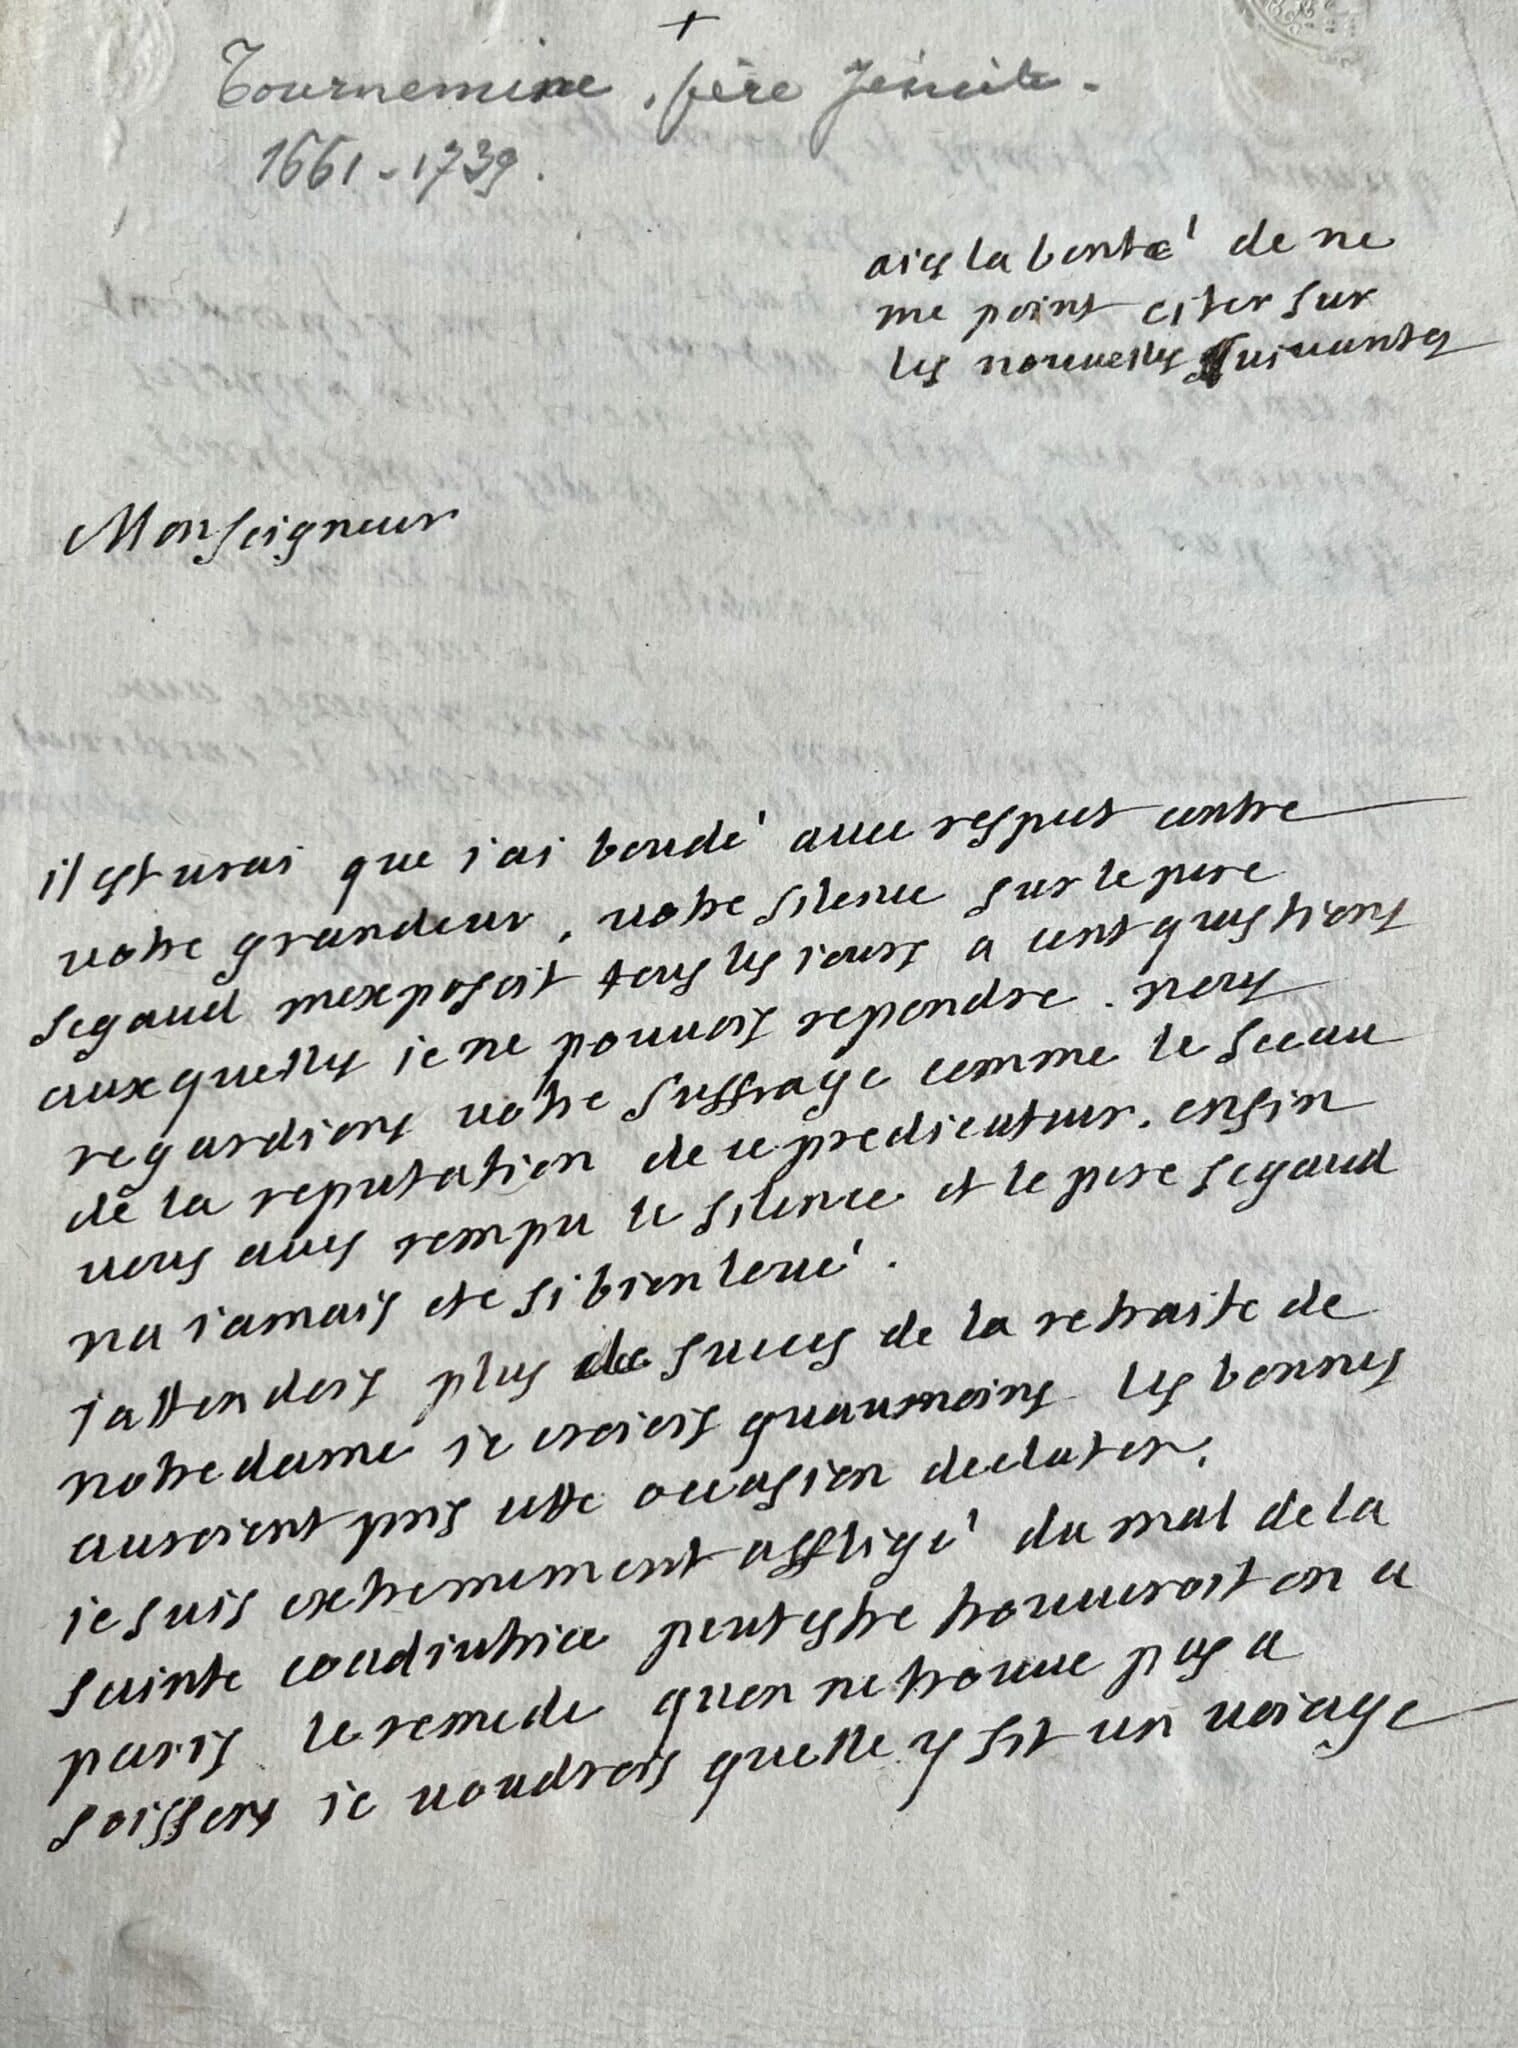 +
Tournemine, père Jésuite.
1661-1739.
aies la bonté de ne
me point citer sur
les nouuelles suiuantes
Monseigneur
il est urai que i'ai boudé auec respect contre
uotre grandeur, uotre silence sur le pere
segaud mexposoit tous les iours a cent questions
auxquelles ie ne pouuois repondre. nous
regardions uotre suffrage comme le sceau
de la reputation de ce predicateur. enfin
uous aues rompu le silence et le pere segaud
na iamais ete si bien loué.
iattendois plus de succes de la retraite de
notre dame ie croiois quaumoins les bonnes
auroient pris cette occasion declater.
ie suis extremement affligé du mal de la
sainte coadiutrice peutestre trouueroit on a
paris le remede quon ne trouue pas a
soissons ie uoudrois quelle y fit un uoiage